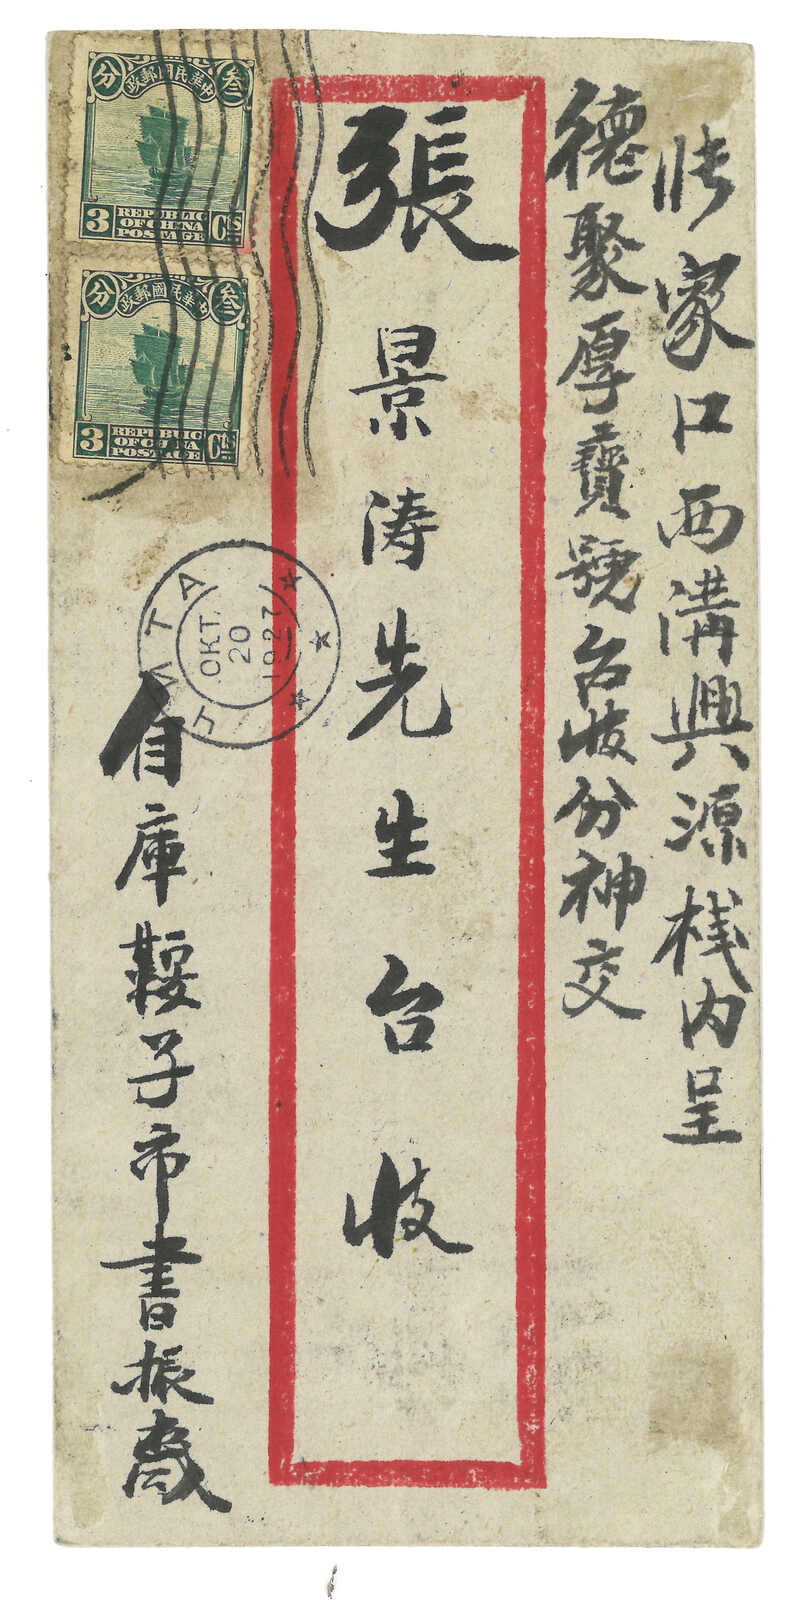 张家口西溝興源栈内呈
德聚厚寶號台收份神交
張景涛先生台收
自庫鞍子市書振
中華民國郵政
叁
分
3
REPUBLIC
OF CHINA
POSTAGE
CTS
中華民國郵政
叁
分
3
REPUBLIC
OF CHINA
POSTAGE
CTS
ЧИТА
ОКТ.
20
1927